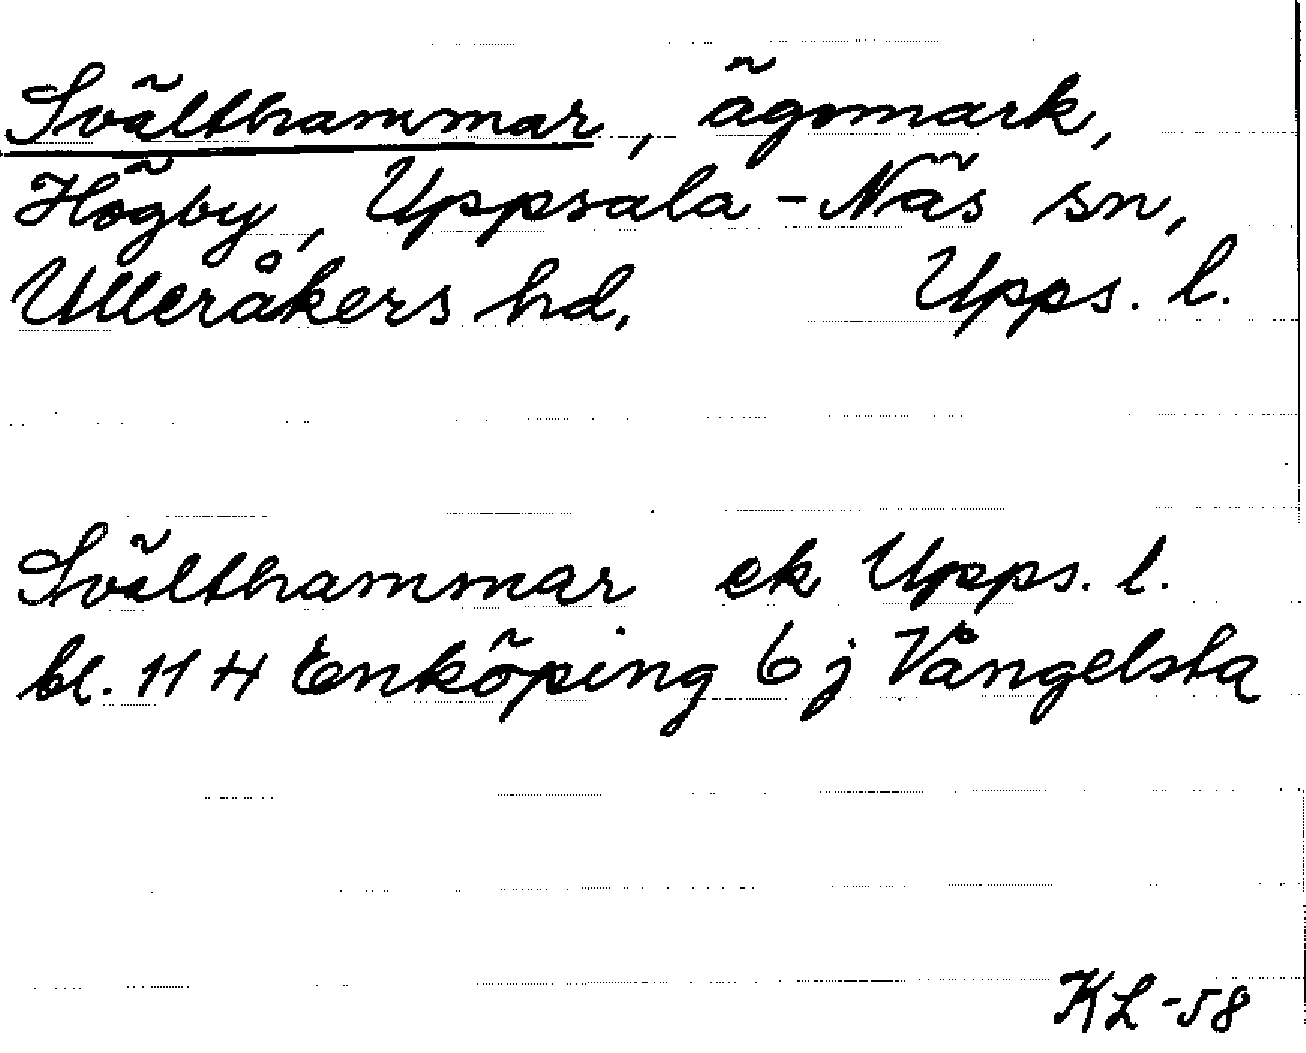 Svälthammar, ägomark,
Högby, Uppsala-Näs sn,
Ulleråkers hd, Upps. l.
Svälthammar ek Upps. l.
bl. 11 H Enköping 6 j Vångelsta
KL-58